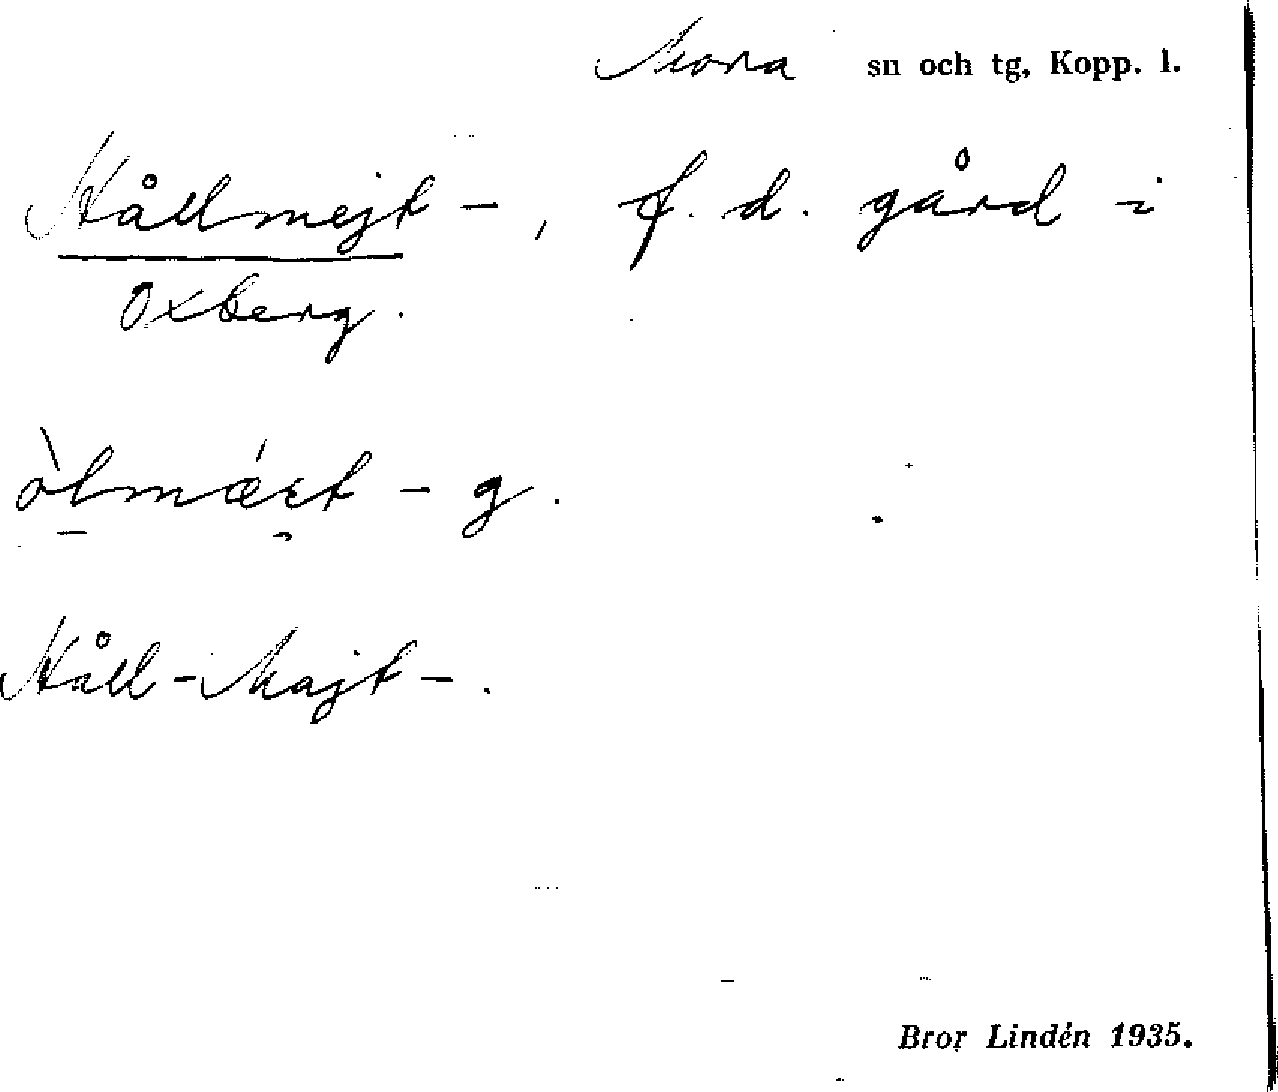 Mora sn och tg, Kopp. l.
Hållmejt-, f. d. gård i
Oxberg.
òlmǽɛt - g.
Håll-Majt-.
Bror Lindén 1935.